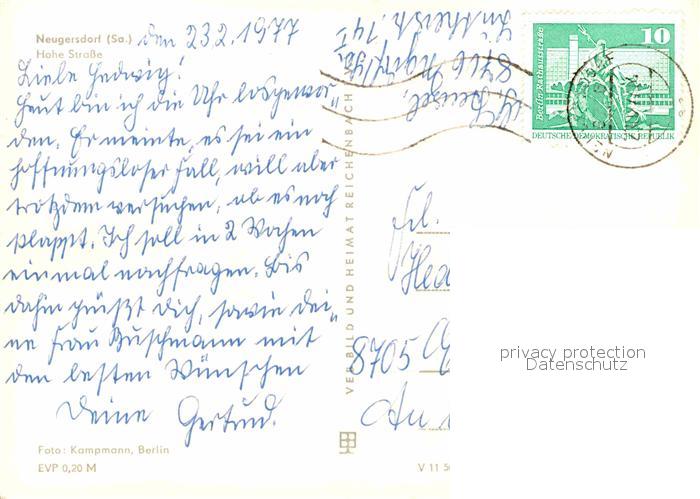 Neugersdorf (Sa.)
Hohe Straße
den 23.2.1977
Liebe Hedwig!
Heut bin ich die Uhr losgewor-
den. Er meinte, es sei ein
hoffnungsloser Fall, will aber
trotzdem versuchen, ob es noch
klappt. Ich soll in 2 Wochen
einmal nachfragen. Bis
dahin grüßt Dich, sowie Dei-
ne Frau Buschmann mit
den besten Wünschen
Deine Gertrud.
Foto: Kampmann, Berlin
EVP 0,20 M
VEB BILD UND HEIMAT REICHENBACH
8706
10
Berlin Rathausstraße
DEUTSCHE DEMOKRATISCHE REPUBLIK
8705
An
V 11 50
privacy protection
Datenschutz